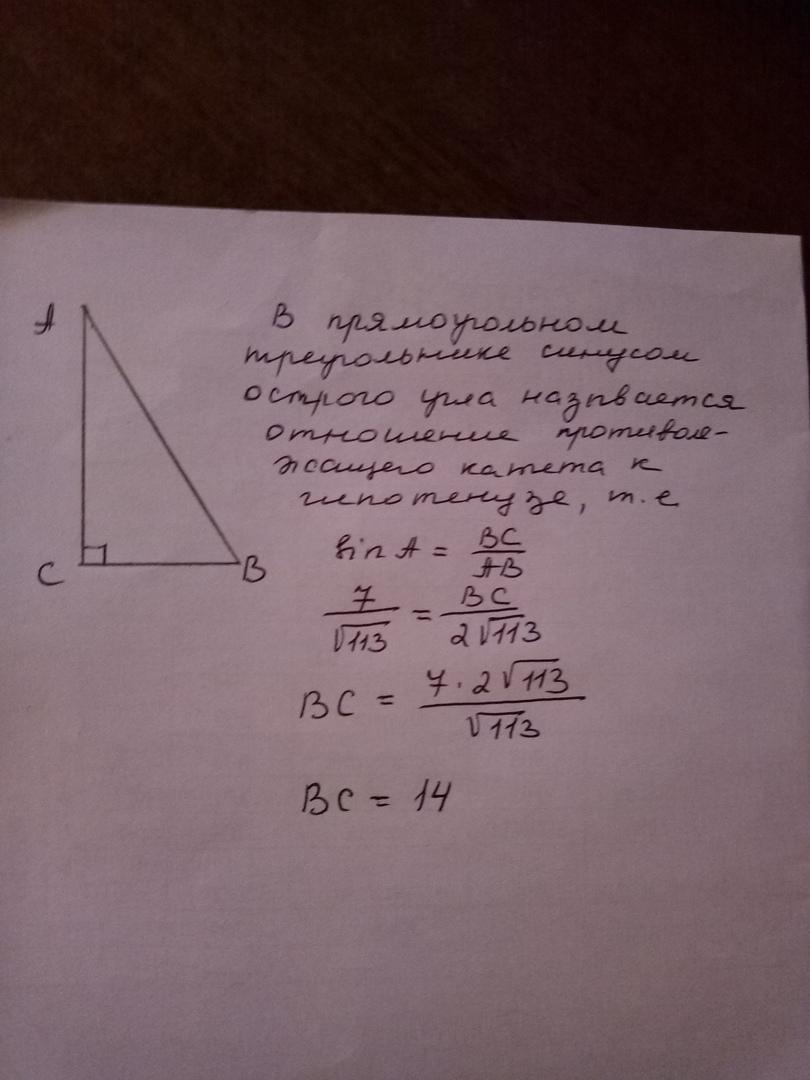 A
C
B
В прямоугольном
треугольнике синусом
острого угла называется
отношение противоле-
жащего катета к
гипотенузе, т.е
sin A = BC/AB
7/√113 = BC/2√113
BC = 7·2√113/√113
BC = 14